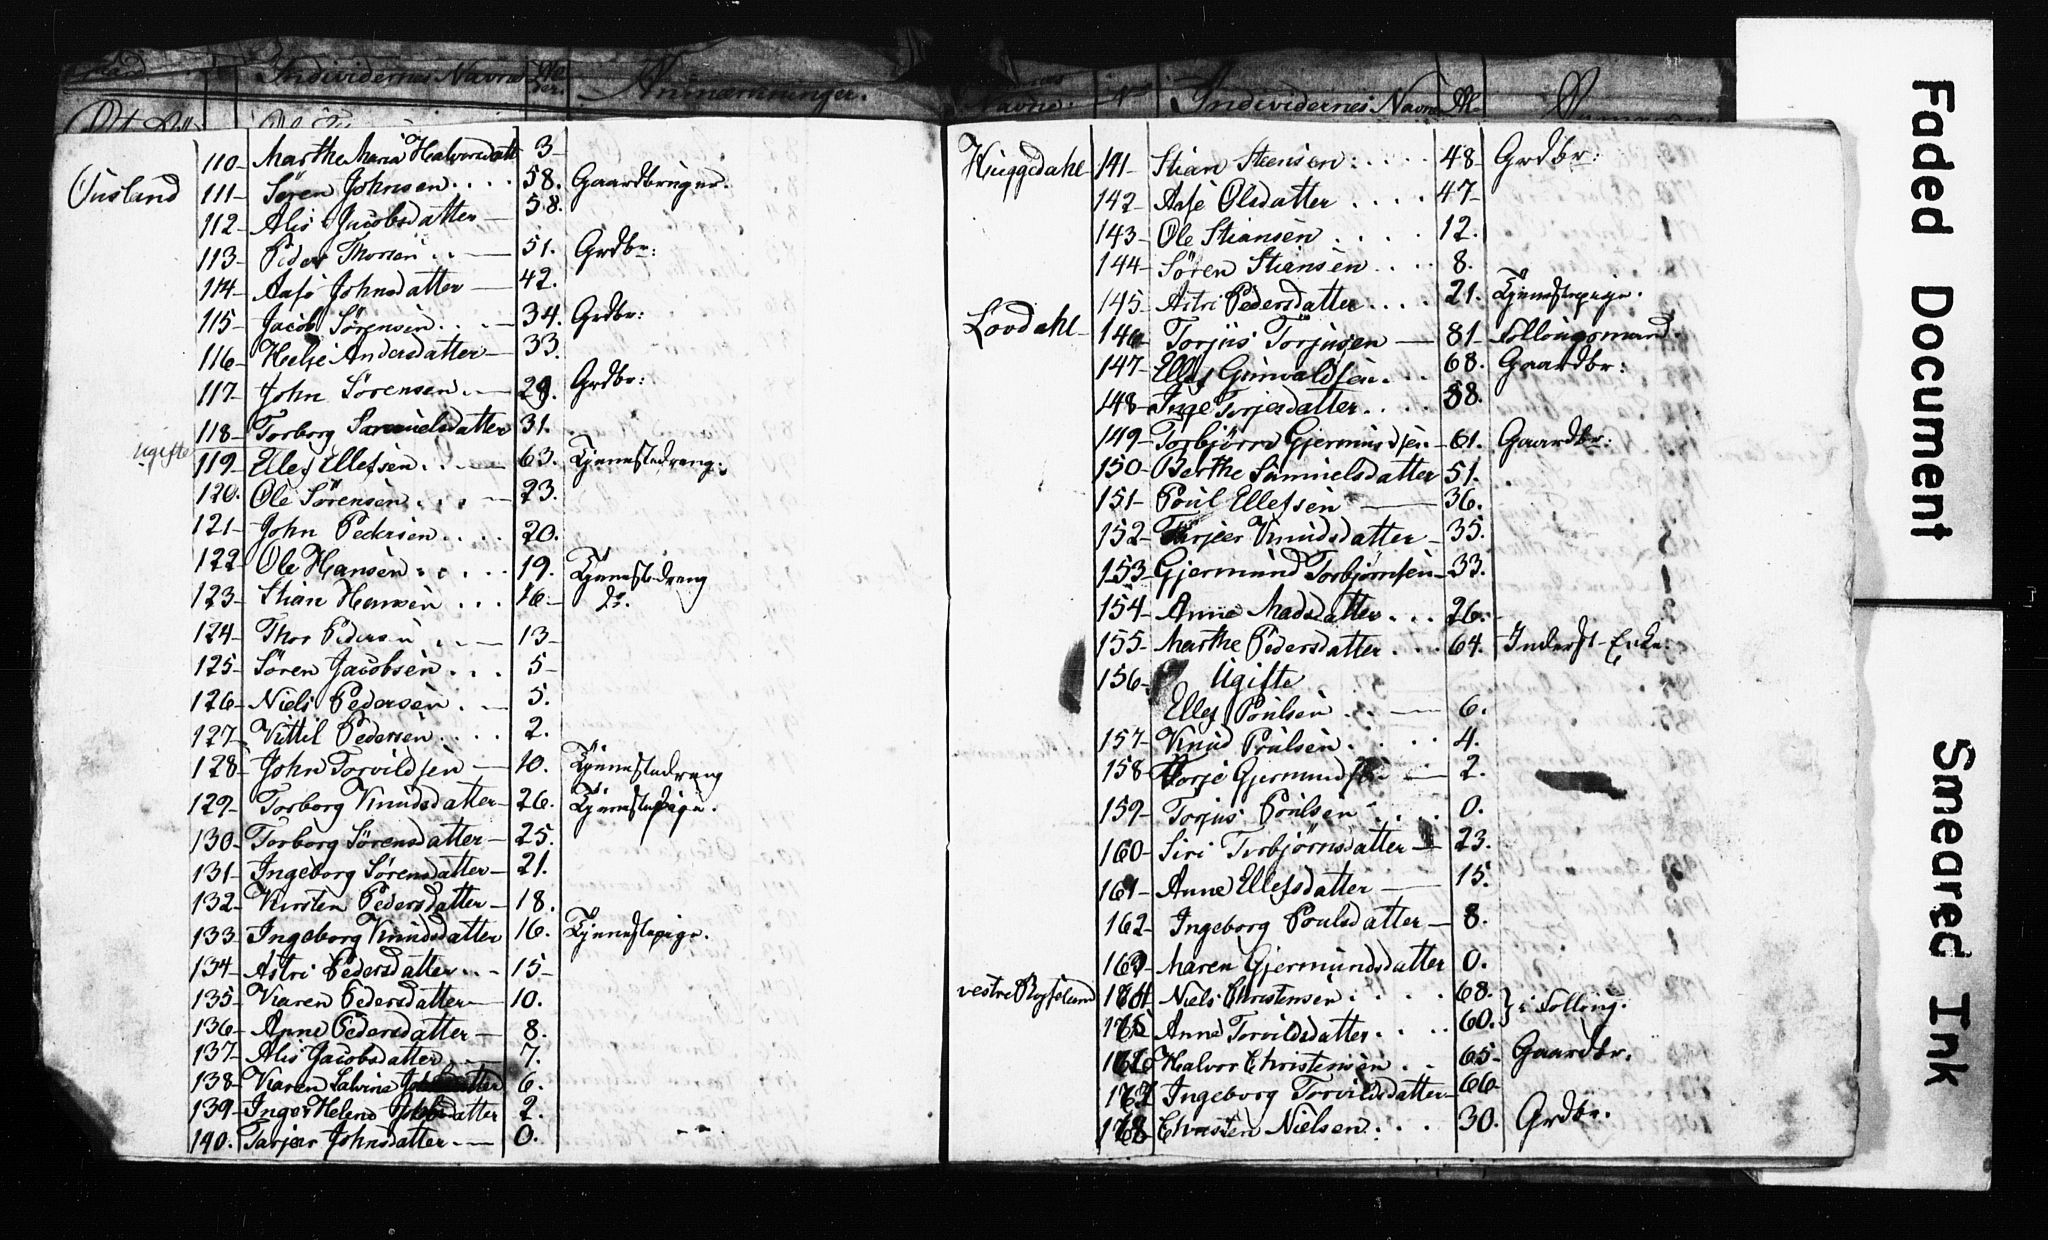 Individernes Navne
Anmærkninger.
110- Marthe Maria Halvorsdatt 3-
Ousland 111- Sören Johnsen 58. Gaardbruger.
112- Alis Jacobsdatter 58.
113- Peder Thorsen 51. Grdbr:
114- Aase Johnsdatter 42.
115- Jacob Sørensen 34. Grdbr:
116- Helje Andersdatter 33.
117- John Sørensen 29. Grdbr:
118- Torborg Samuelsdatter 31.
Ugifte
119- Ellef Ellefsen 63. Tjennestedreng.
120. Ole Sörensen 23.
121- John Pedersen 20.
122- Ole Hansen 19. Tjennestedreng
123- Stian Hansen 16- Do.
124- Thor Pedersen 13-
125- Sören Jacobsen 5-
126- Niels Pedersen 5.
127- Kittil Pedersen 2.
128- John Torvildsen 10. Tjennestedreng
129- Torborg Knudsdatter 26. Tjennestepige.
130- Torborg Sörensdatter 25.
131- Ingeborg Sörensdatter 21.
132- Kirsten Pedersdatter 18.
133 Ingeborg Knudsdatter 16. Tjennestepige.
134- Astri Pedersdatter 15-
135- Karen Pedersdatter 10.
136- Anne Pedersdatter 8.
137- Alis Jacobsdatter 7.
138- Karen Salvine 6.
139- Inger Helene 2.
140. Tarjer Johnsdatter 0.
Navne: N Individernes Navne
Huggdahl 141- Stian Steensen 48- Grdbr:
142- Aase Olsdatter 47-
143- Ole Stiansen 12.
144- Sören Stiansen 8.
145- Astri Pedersdatter 21. Tjennestepige.
Lovdahl 146 Torjus Torjusen 81- Follougsmand.
147- Ellef Gunvaldsen 68. Gaardbr:
148- Inge Torjesdatter 58.
149- Torbjörn Gjermundsen 61. Gaardbr:
150- Berthe Samuelsdatter 51.
151- Poul Ellefsen 36.
152- Tarjer Knudsdatter 35.
153- Gjermund Torbjørnsen 33.
154- Anne Madsdatter 26.
155- Marthe Pedersdatter 64. Inderst-Enke.
156- Ugifte
Ellef Poulsen 6.
157- Knud Poulsen 4.
158 Torje Gjermundsen 2.
159- Torjus Poulsen 0.
160- Siri Torbjørnsdatter 23.
161- Anne Ellefsdatter 15.
162- Ingeborg Poulsdatter 8.
163- Maren Gjermundsdatter 0.
vestre 164 Niels Christensen 68.
165 Anne Torvildsdatter 60. } i Folloug.
166 Halvor Christensen 65- Gaardbr.
167 Ingeborg Torvildsdatter 66
168 Christen Nielsen 30. Grdbr.
Faded Document
Smeared Ink